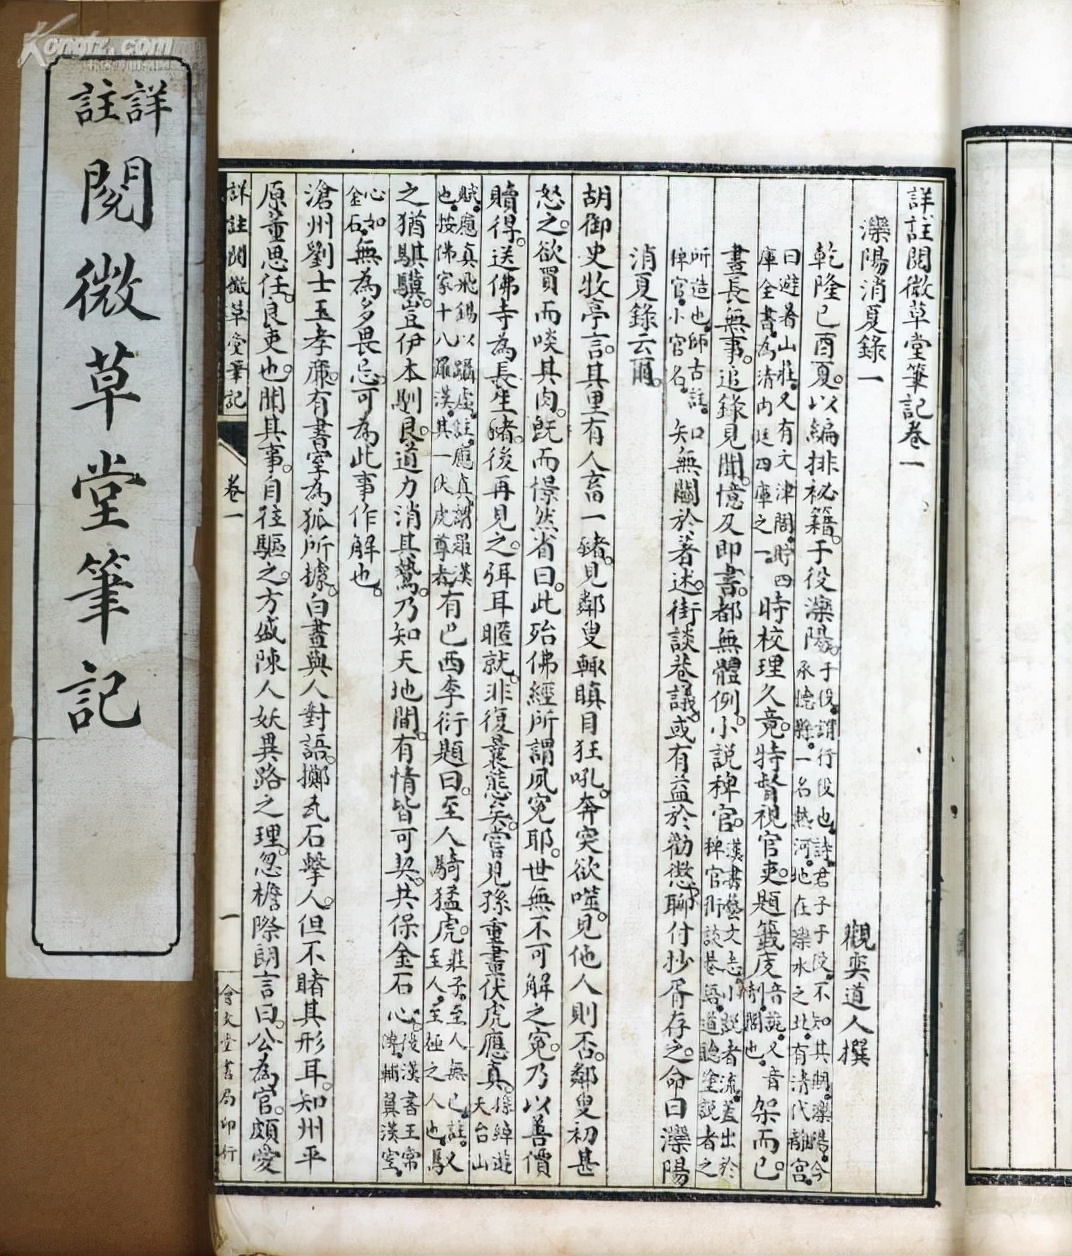 Kongfz.com
詳註
閱微草堂筆記
詳註閱微草堂筆記卷一
灤陽消夏錄一
觀奕道人撰
乾隆己酉夏。以編排秘籍。于役灤陽。于役。謂行役也。詩。君子于役。不知其期。灤陽。今承德縣。一名熱河。地在灤水之北。有清代離宮。
曰避暑山莊。又有文津閣。貯四庫全書。為清內廷四庫之一。時校理久竟。特督視官吏。題籤庋音詭。又音剞。閣也。架而已。
晝長無事。追錄見聞。憶及即書。都無體例。小說稗官。漢書藝文志。小說者流。蓋出於稗官。街談巷語。道聽塗說者之
所造也。師古註。稗官。小官名。知無關於著述。街談巷議。或有益於勸懲。聊付抄胥存之。命曰灤陽
消夏錄云爾。
胡御史牧亭言。其里有人畜一豬。見鄰叟輒瞋目狂吼。奔突欲噬。見他人則否。鄰叟初甚
怒之。欲買而啖其肉。旣而憬然省曰。此殆佛經所謂夙冤耶。世無不可解之冤。乃以善價
贖得。送佛寺為長生豬。後再見之。弭耳暱就。非復曩態矣。嘗見孫重畫伏虎應真。孫綽遊天台山
賦。應真飛錫以躡虛。註。應真。謂羅漢也。按佛家十八羅漢。其一伏虎尊者。有巴西李衍題曰。至人騎猛虎。莊子。至人無己。註。又至人。至極之人也。馭
之猶騏驥。豈伊本馴良。道力消其鷙。乃知天地間。有情皆可契。共保金石心。後漢書王常傳。輔翼漢室。
心如金石。無為多畏忌。可為此事作解也。
滄州劉士玉孝廉。有書室為狐所據。白晝與人對語。擲瓦石擊人。但不睹其形耳。知州平
原董思任。良吏也。聞其事。自往驅之。方盛陳人妖異路之理。忽檐際朗言曰。公為官。頗愛
詳註閱微草堂筆記
卷一
一
會文堂書局印行